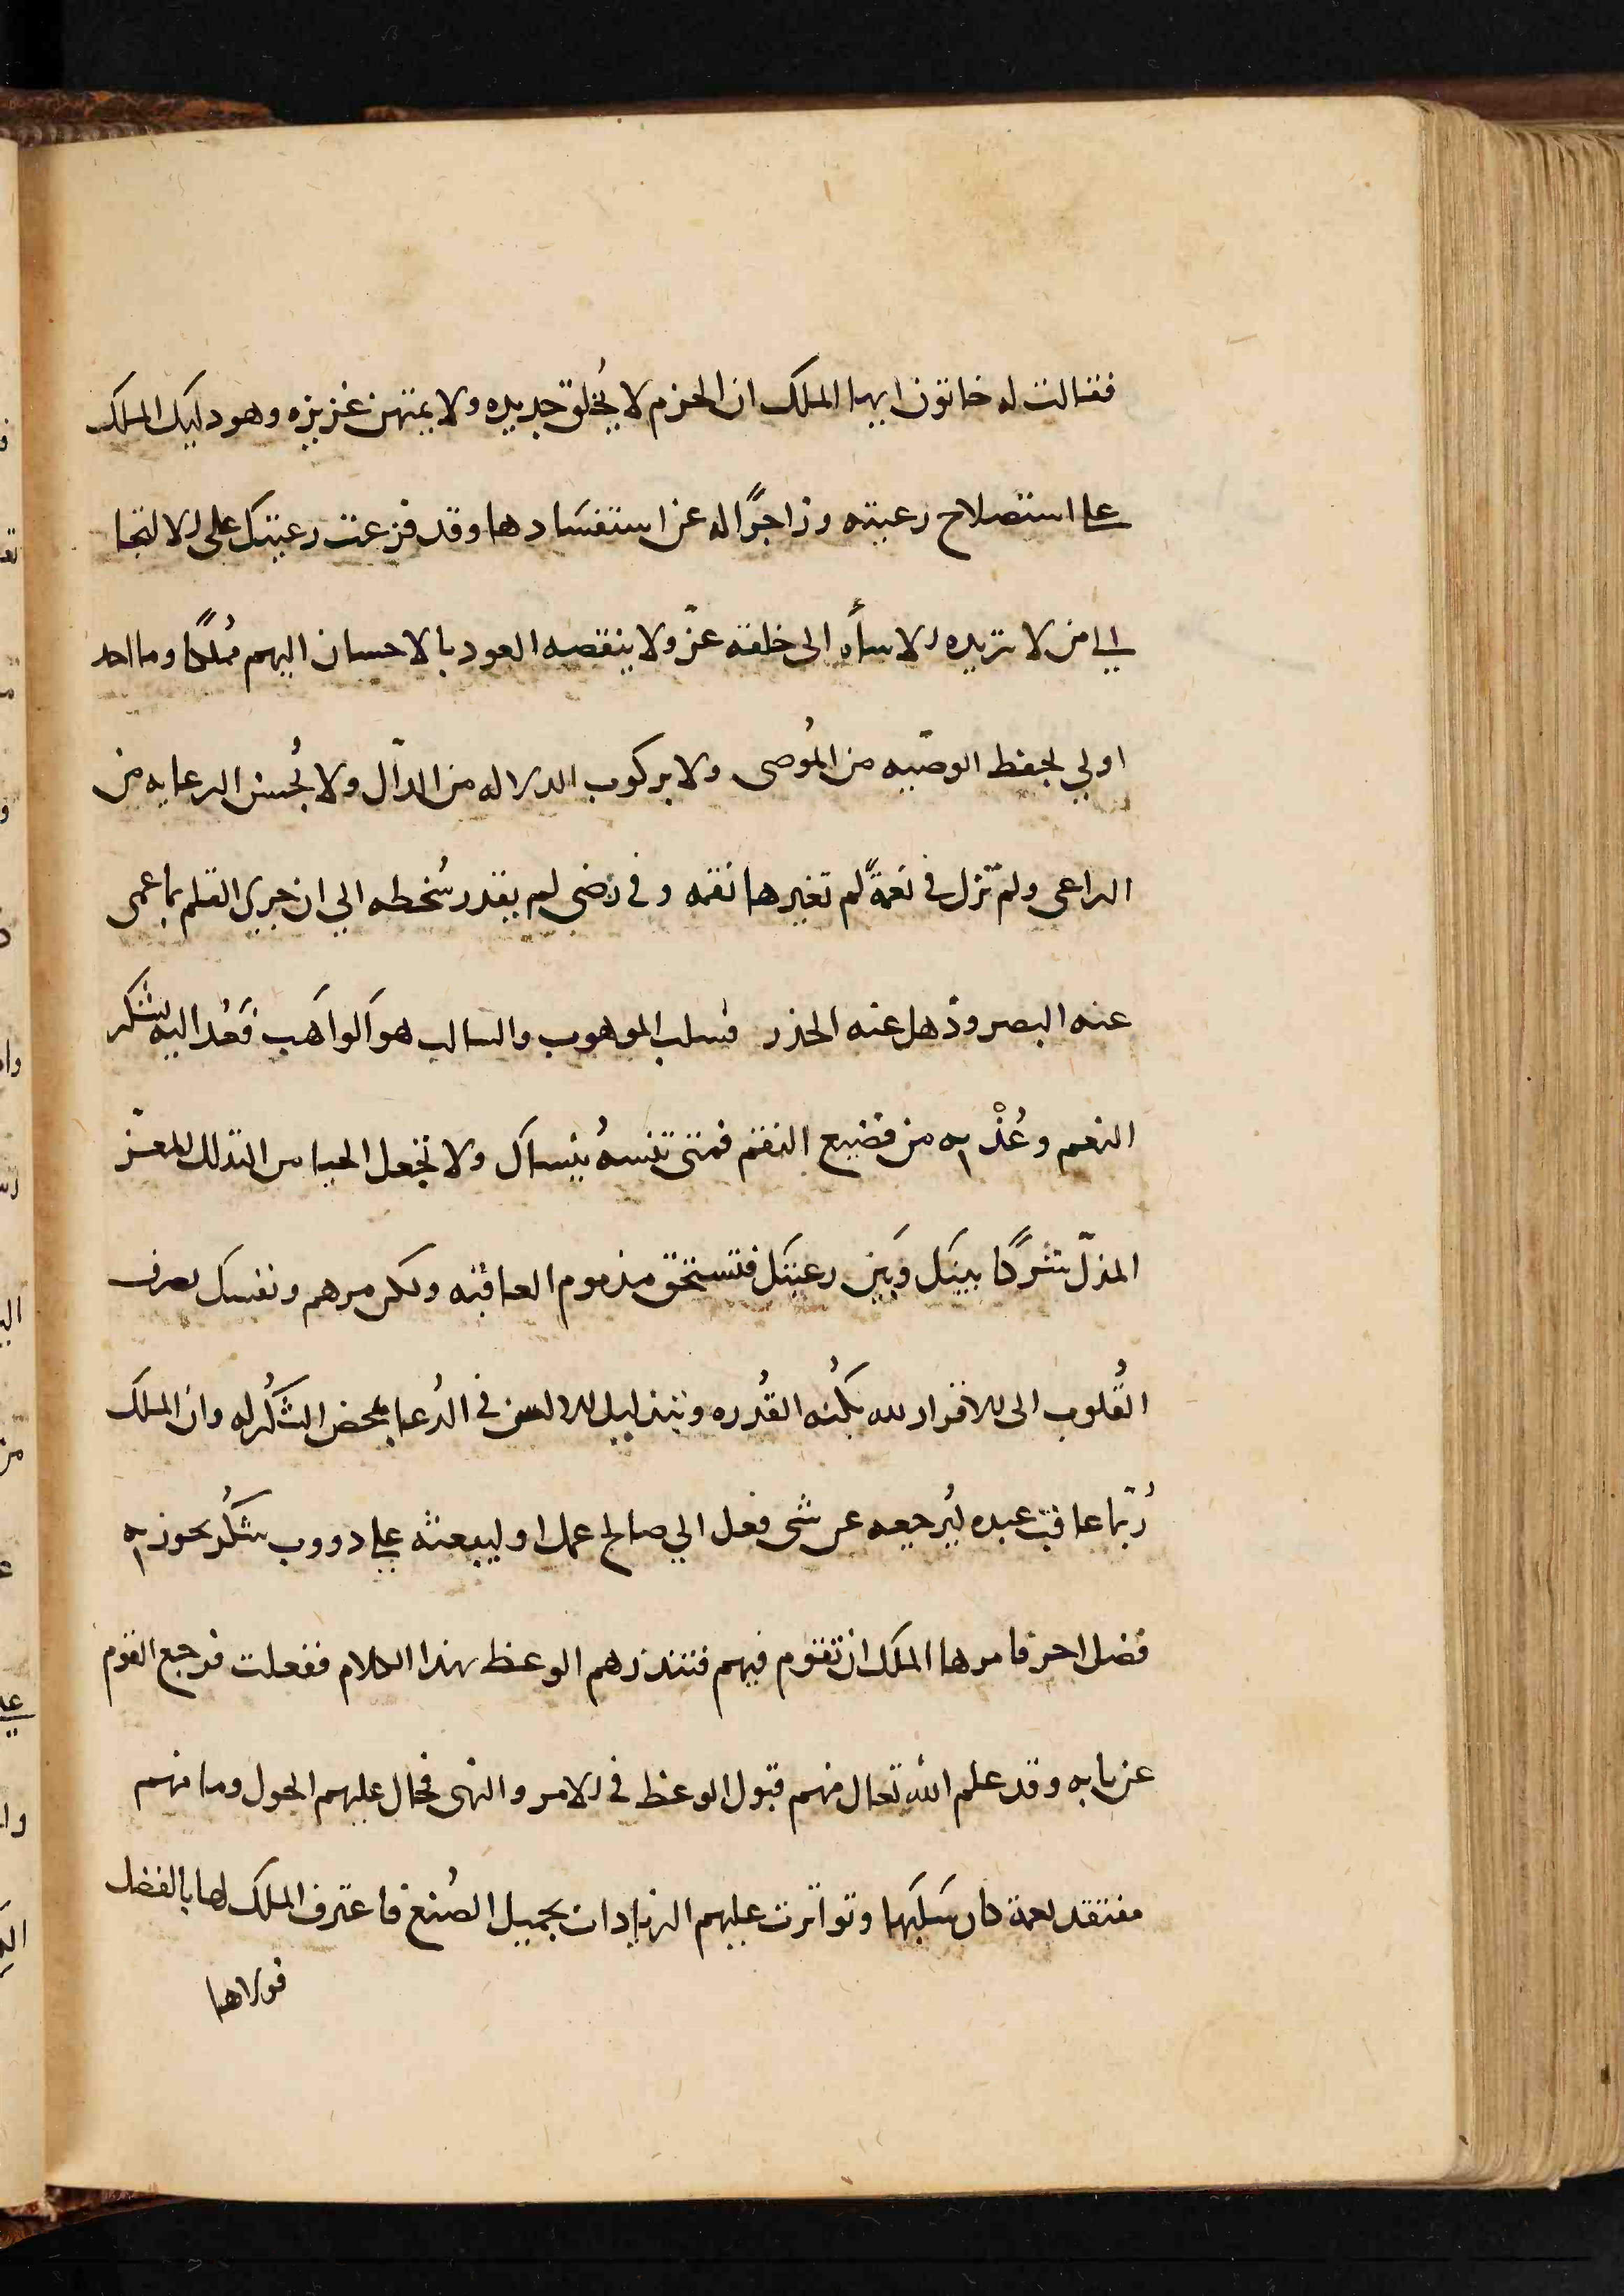 فقالت له خاتون ايها الملك ان الحزم لا يُخلق جديده ولا يمتهن عزيزه وهو دليك الملك
على استصلاح رعيته وزاجرًا له عن استفسَادها وقد فزعت رعيتك على الالتجا
الى من لا تزيده الاساْه الى خلقه عزّ ولا ينقصه العود بالاحسان اليهم مُلكًا وما احد
اولي بحفظ الوصّيه من المُوصى ولا بركوب الدلاله من الدّال ولا بحُسن الرعايه من
الراعى ولم تزل في نعمةً لم تغيرها نقمه وفي رضي لم يقدر سُخطه الي ان جرى القلم بما عمى
عنه البصر وذهل عنه الحذر فسلب الموهوب والسالب هو الواهب فَعُد اليه بشكر
النعم وعُذْ به من فضيع النقم فمتى تنسهُ ينساك ولا تجعل الحيا من التذلل للمعزّ
المذلّ شركًا بينك وَبَين رعيتك فتستحق مذموم العاقبه ولكن مرهم ونفسك بصرف
القُلوب الى الاقرار لله بكُنه القُدره وبتذليل الالسن في الدُعا بمحض الشكر له وان الملك
رُبّما عاقب عبده ليُرجعه عن شى فعل الي صالح عمل او ليبعثه على دووب شكُر يحوز به
فضل اجر فامرها الملك ان تقوم فيهم فتنذرهم الوعظ بهذا الكلام ففعلت فرجع القوم
عن بابه وقد علم الله تعال منهم قبول الوعظ في الامر والنهى فحال عليهم الحول وما منهم
مفتقد نعمة كان سَلبَها وتواترت عليهم الزيادات بجميل الصُنع فاعترف الملك لها بالفضل
فولاها